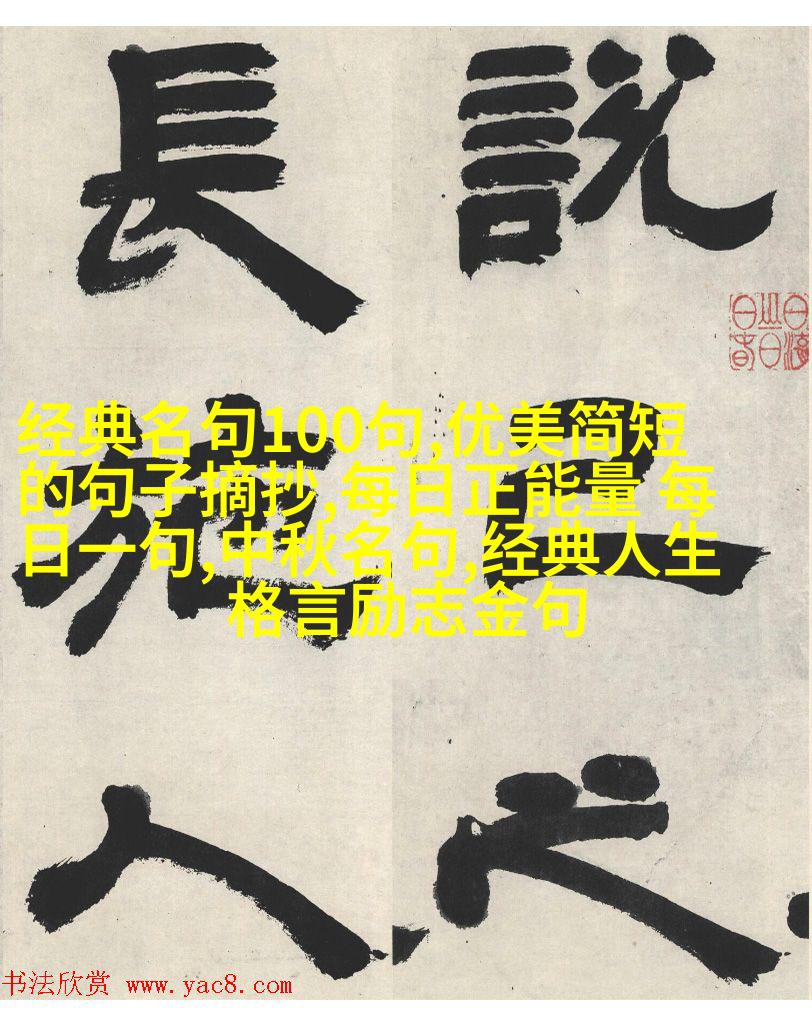 說己之
長施人
经典名句100句,优美简短
的句子摘抄,每日正能量 每
日一句,中秋名句,经典人生
格言励志金句
书法欣赏 www.yac8.com